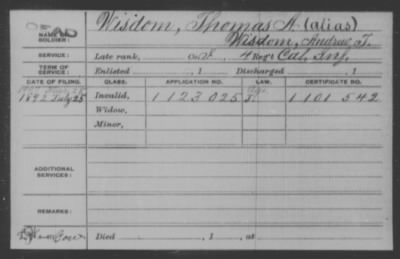 NAME OF SOLDIER: Wisdom, Thomas A. (alias)
Wisdom, Andrew J.
SERVICE: Late rank, Co. 4 Reg't Cal. Inf.
TERM OF SERVICE: Enlisted , 1 Discharged , 1
DATE OF FILING. CLASS. APPLICATION NO. LAW. CERTIFICATE NO.
1892 July 25 Invalid, 1123025 1101542
Widow,
Minor,
ADDITIONAL SERVICES:
REMARKS:
Died , 1 , at